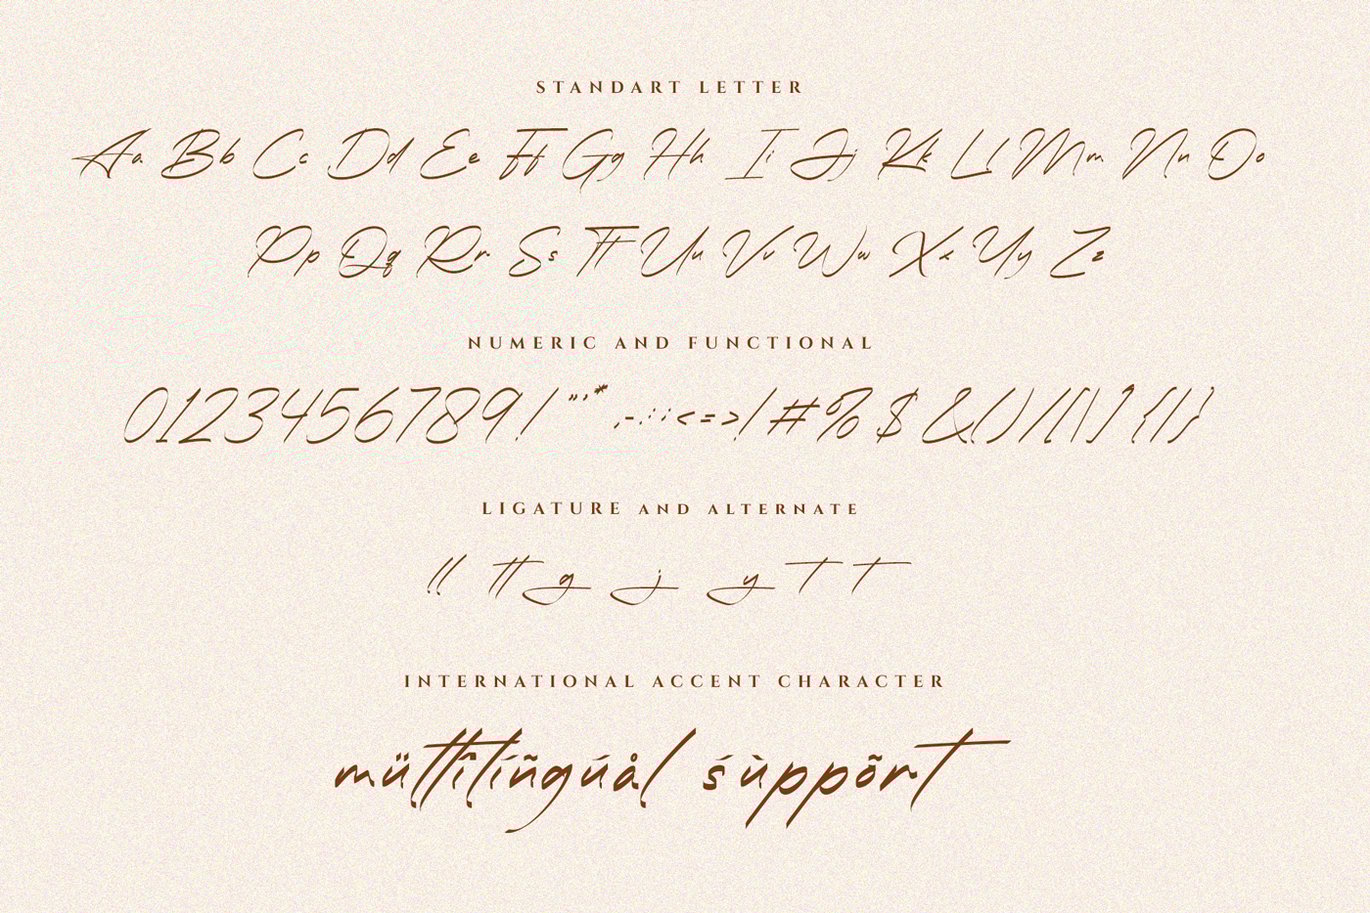 STANDART LETTER
Aa Bb Cc Dd Ee Ff Gg Hh Ii Jj Kk Ll Mm Nn Oo
Pp Qq Rr Ss Tt Uu Vv Ww Xx Yy Zz
NUMERIC AND FUNCTIONAL
0123456789! "'* ,-.:;<=>/ #% $ &()/[\]?{|}
LIGATURE AND ALTERNATE
ll tt g j y t t
INTERNATIONAL ACCENT CHARACTER
mültîlíñgúål śùppõrt